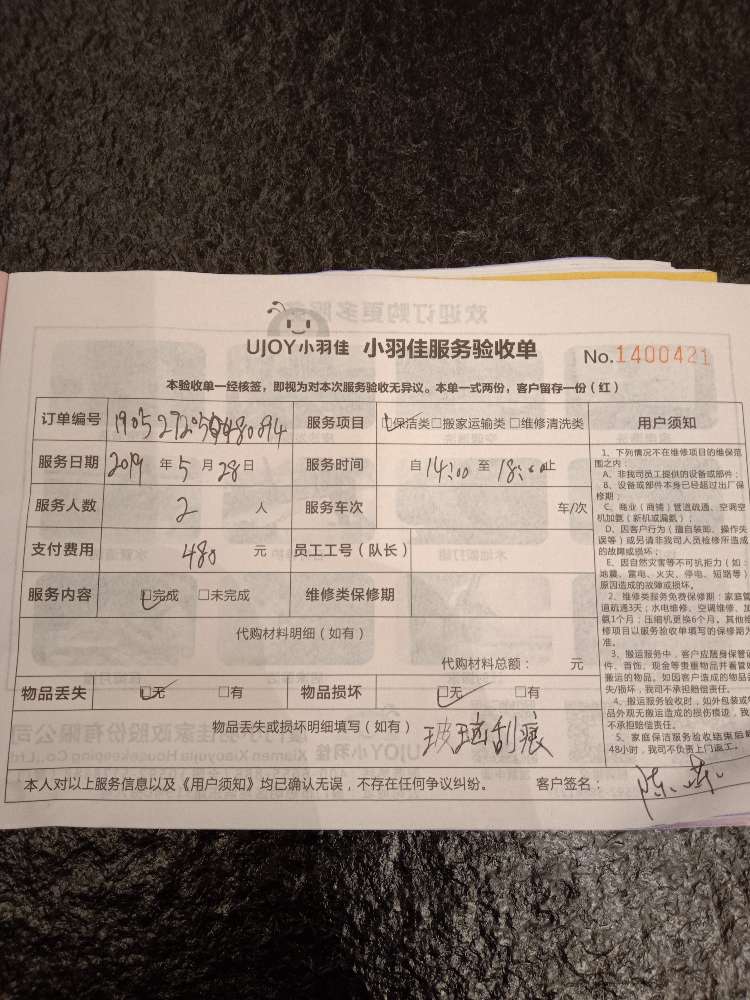 UJOY小羽佳 小羽佳服务验收单 No.1400421
本验收单一经核签，即视为对本次服务验收无异议。本单一式两份，客户留存一份（红）
订单编号 服务项目 ☑保洁类□搬家运输类□维修清洗类
服务日期 2019年5月28日 服务时间 自14:00至18:00止
服务人数 2 人 服务车次 车/次
支付费用 480 元 员工工号（队长）
服务内容 ☑完成 □未完成 维修类保修期
代购材料明细（如有）
代购材料总额： 元
物品丢失 ☑无 □有 物品损坏 ☑无 □有
物品丢失或损坏明细填写（如有） 玻璃刮痕
本人对以上服务信息以及《用户须知》均已确认无误，不存在任何争议纠纷。 客户签名：
用户须知
1、下列情况不在维修项目的维保范
围之内：
A、非我司员工提供的设备或部件；
B、设备或部件本身已经超过出厂保
修期；
C、商业（商铺）管道疏通、空调空
机加氨（新机或漏氨）；
D、因客户行为（擅自装卸、操作失
误等）或另请非我司人员检修所造成
的故障或损坏；
E、因自然灾害等不可抗拒力（如：
地震、雷电、火灾、停电、短路等）
原因造成的故障或损坏。
2、维修类服务免费保修期：家庭管
道疏通3天；水电维修、空调维修、加
氨1个月；压缩机更换6个月。其他维
修项目以服务验收单填写的保修期为
准。
3、搬运服务中，客户应随身保管证
件、首饰、现金等贵重物品并看管好
搬运的物品。如因客户造成的物品丢
失/损坏，我司不承担赔偿责任。
4、搬运服务验收时，如外包装或物
品外观无搬运造成的损伤痕迹，我
不承担赔偿责任。
5、家庭保洁服务验收结束后超
48小时，我司不负责上门返工。